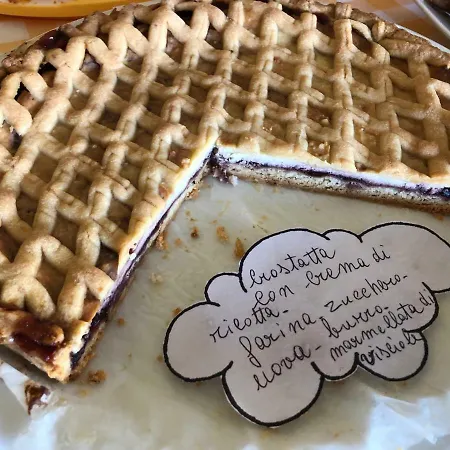 Crostatta
con crema di
ricotta-
farina zucchero-
uova- burro-
marmellata di
visciole